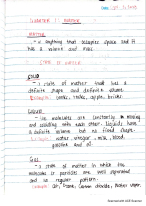 CHAPTER 1 MATTER
MATTER
- is anything that occupies space and it
has a volume and mass.
STATE OF MATTER
SOLID
- a state of matter that has a
definite shape and definite volume.
Example: rocks, chalk, bricks.
LIQUID
- its molecules are constantly moving
and colliding with each other. Liquids have
a definite volume but no fixed shape.
water, vinegar, milk, blood,
gasoline and oil.
GAS
- A state of matter in which the
molecules or particles are well separated
and no regular pattern.
Example: air, carbon dioxide, water vapor
Scanned with CamScanner